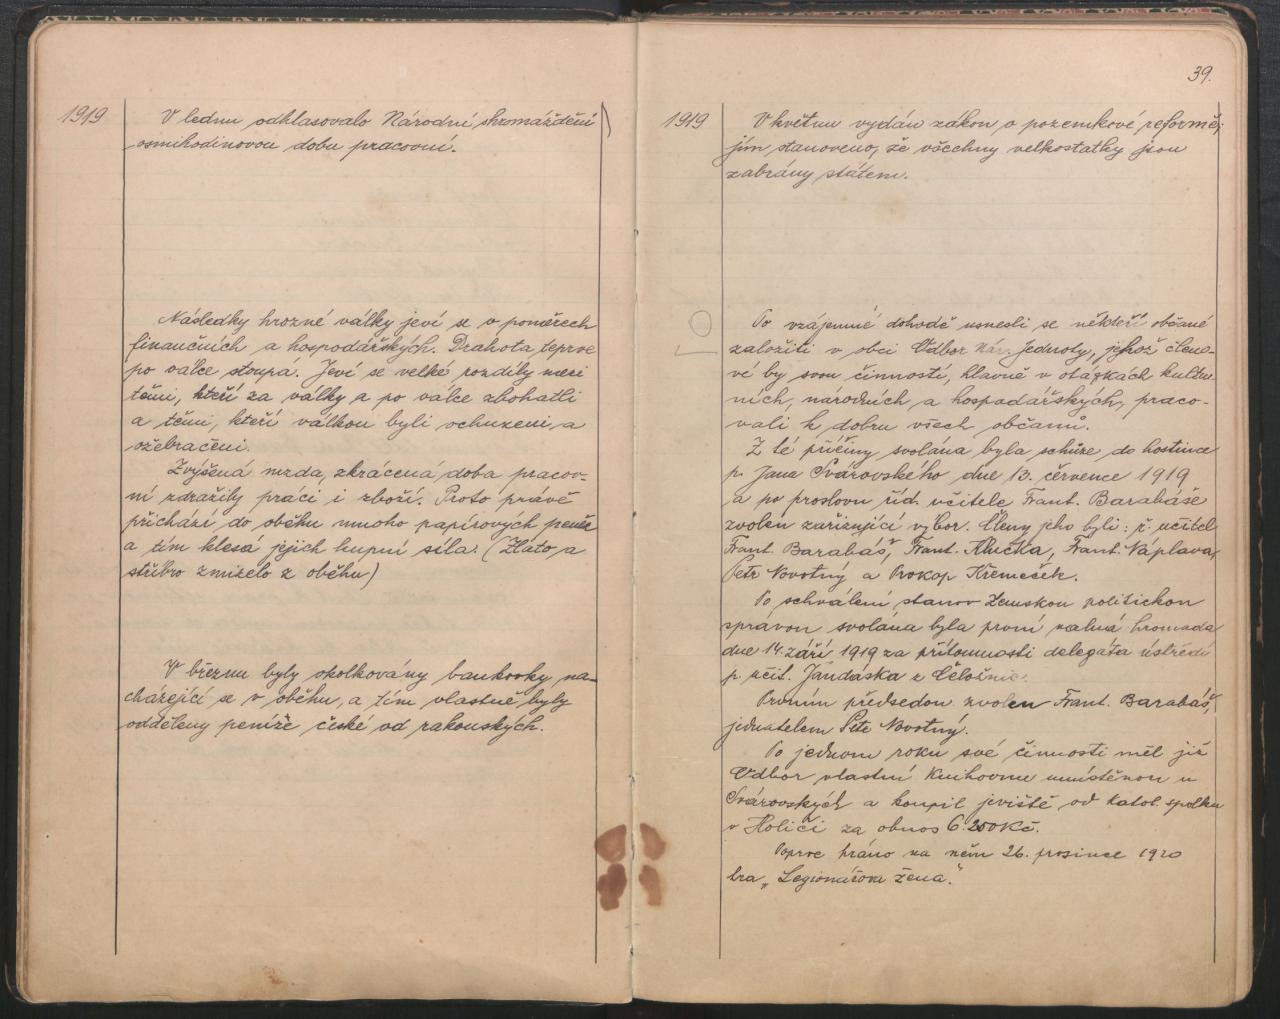 1919
V lednu odhlasovalo Národní shromáždění
osmihodinovou dobu pracovní.
Následky hrozné války jeví se v poměrech
finančních a hospodářských. Drahota teprve
po válce stoupa. Jeví se velké rozdíly mezi
těmi, kteří za války a po válce zbohatli
a těmi, kteří válkou byli ochuzeni a
ožebračeni.
Zvýšená mzda, zkrácená doba pracov-
ní zdražily práci i zboží. Proto právě
přichází do oběhu mnoho papírových peněz
a tím klesá jejich kupní síla. (Zlato a
stříbro zmizelo z oběhu)
V březnu byly okolkovány bankovky na-
cházející se v oběhu, a tím vlastně byly
odděleny peníze české od rakouských.
39.
1919
V květnu vydán zákon o pozemkové reformě;
jím stanoveno, že všechny velkostatky jsou
zabrány státem.
Po vzájemné dohodě usnesli se někteří občané
založiti v obci Odbor Nár. Jednoty, jehož členo-
vé by svou činností, hlavně v otázkách kultur
ních, národních a hospodářských, praco-
vali k dobru všech občanů.
Z té příčiny svolána byla schůze do hostince
p. Jana Svárovského dne 13. července 1919
a po proslovu říd. učitele Frant. Barabáše
zvolen zařizující výbor. Členy jeho byli: ř. učitel
Frant. Barabáš, Frant. Klučka, Frant. Náplava,
Petr Novotný a Prokop Křemeček.
Po schválení stanov Zemskou politickou
správou svolána byla první valná hromada
dne 14. září 1919 za přítomnosti delegáta ústředí
p. učit. Jandáska z Čeložnic.
Prvním předsedou zvolen Frant. Barabáš,
jednatelem Petr Novotný.
Po jednom roku své činnosti měl již
Odbor vlastní knihovnu umístěnou u
Svárovských a koupil jeviště od katol. spolku
v Holici za obnos 6.200 Kč.
Poprve hráno na něm 26. prosince 1920
hra „Legionářova žena."